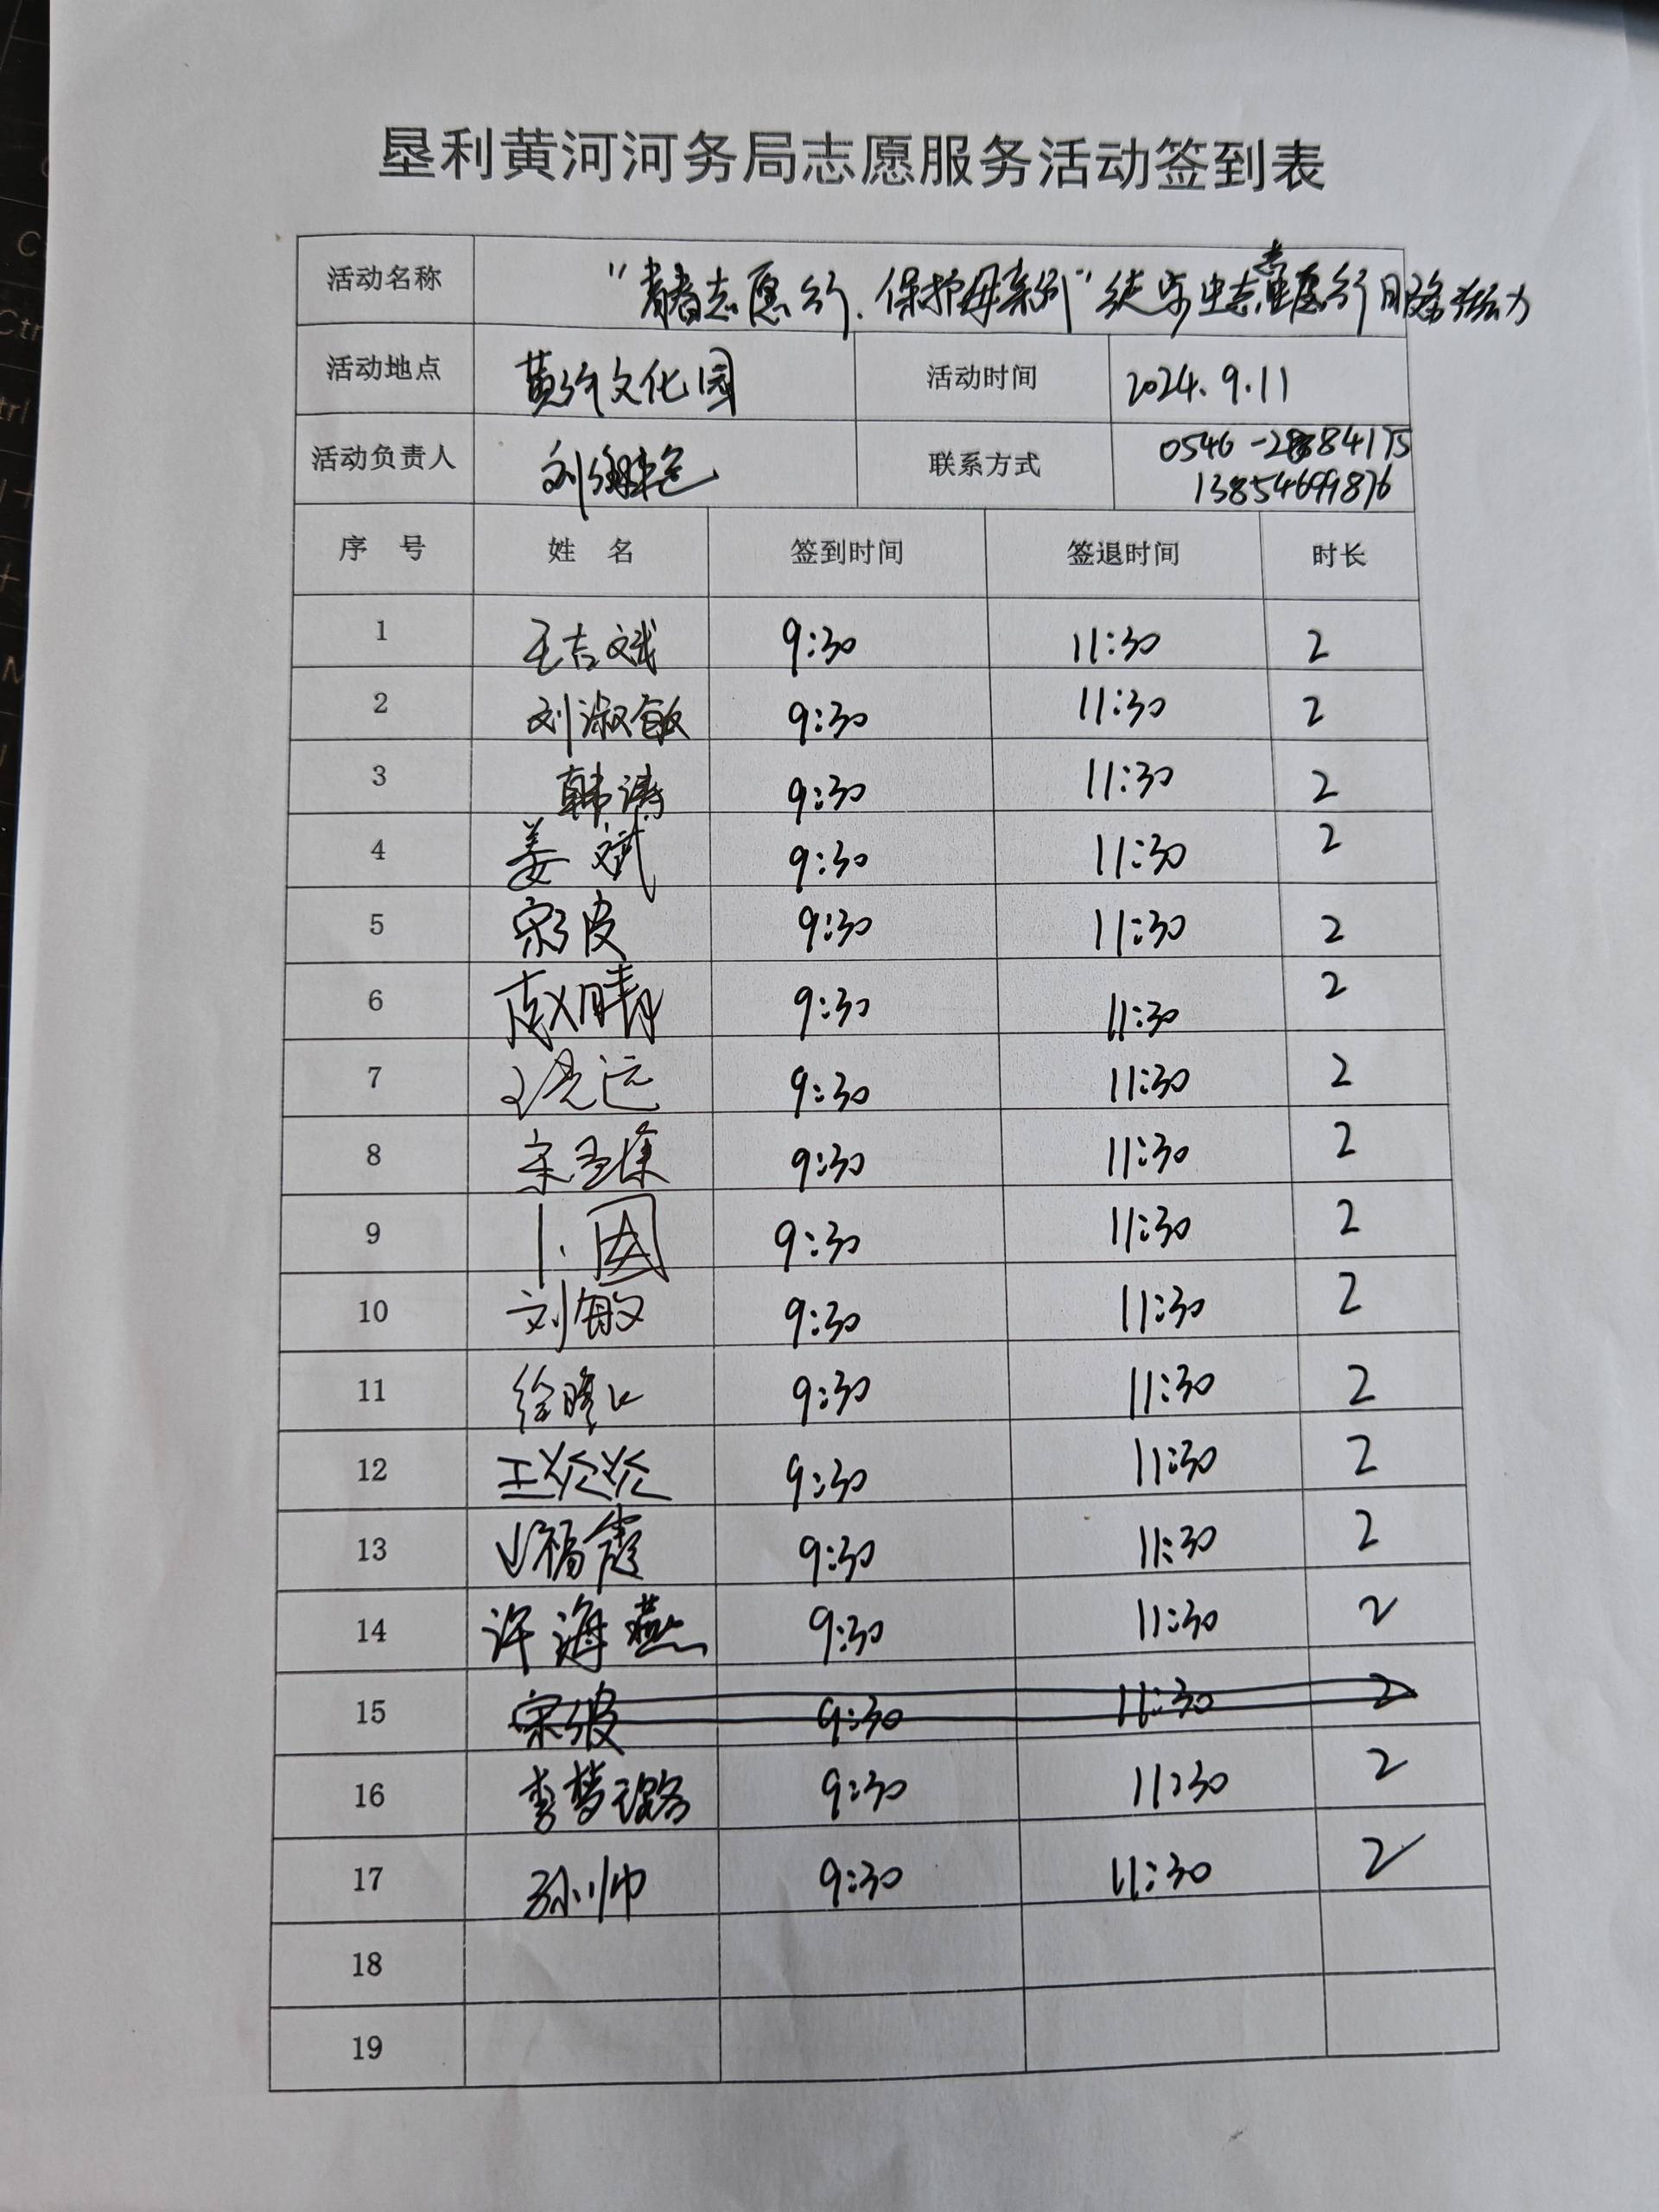 垦利黄河河务局志愿服务活动签到表
活动名称 "青春志愿行.保护母亲河"徒步志愿行服务活动
活动地点 黄河文化园 活动时间 2024.9.11
活动负责人 联系方式 0546-2884175
13854699876
序号 姓名 签到时间 签退时间 时长
1 王吉斌 9:30 11:30 2
2 刘淑敏 9:30 11:30 2
3 韩涛 9:30 11:30 2
4 姜斌 9:30 11:30 2
5 宋波 9:30 11:30 2
6 赵晴 9:30 11:30 2
7 9:30 11:30 2
8 9:30 11:30 2
9 9:30 11:30 2
10 刘敏 9:30 11:30 2
11 9:30 11:30 2
12 9:30 11:30 2
13 9:30 11:30 2
14 许海燕 9:30 11:30 2
15 宋波 9:30 11:30 2
16 李梦璐 9:30 11:30 2
17 孙帅 9:30 11:30 2
18
19